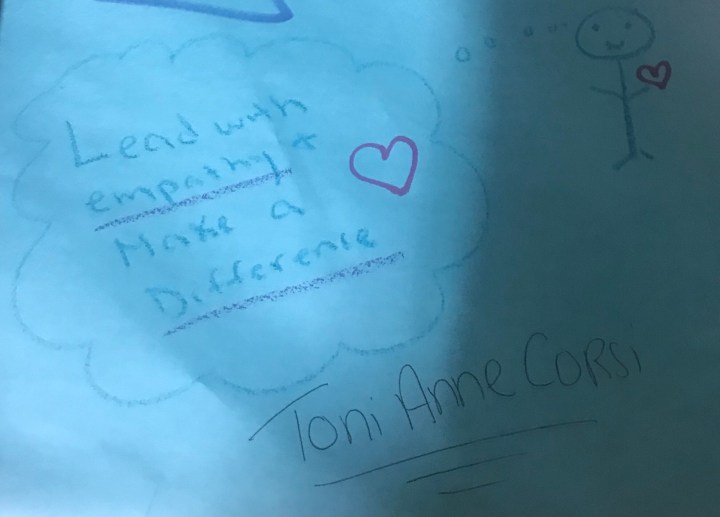 Lead with
empathy +
Make a
Difference
Toni Anne Corsi